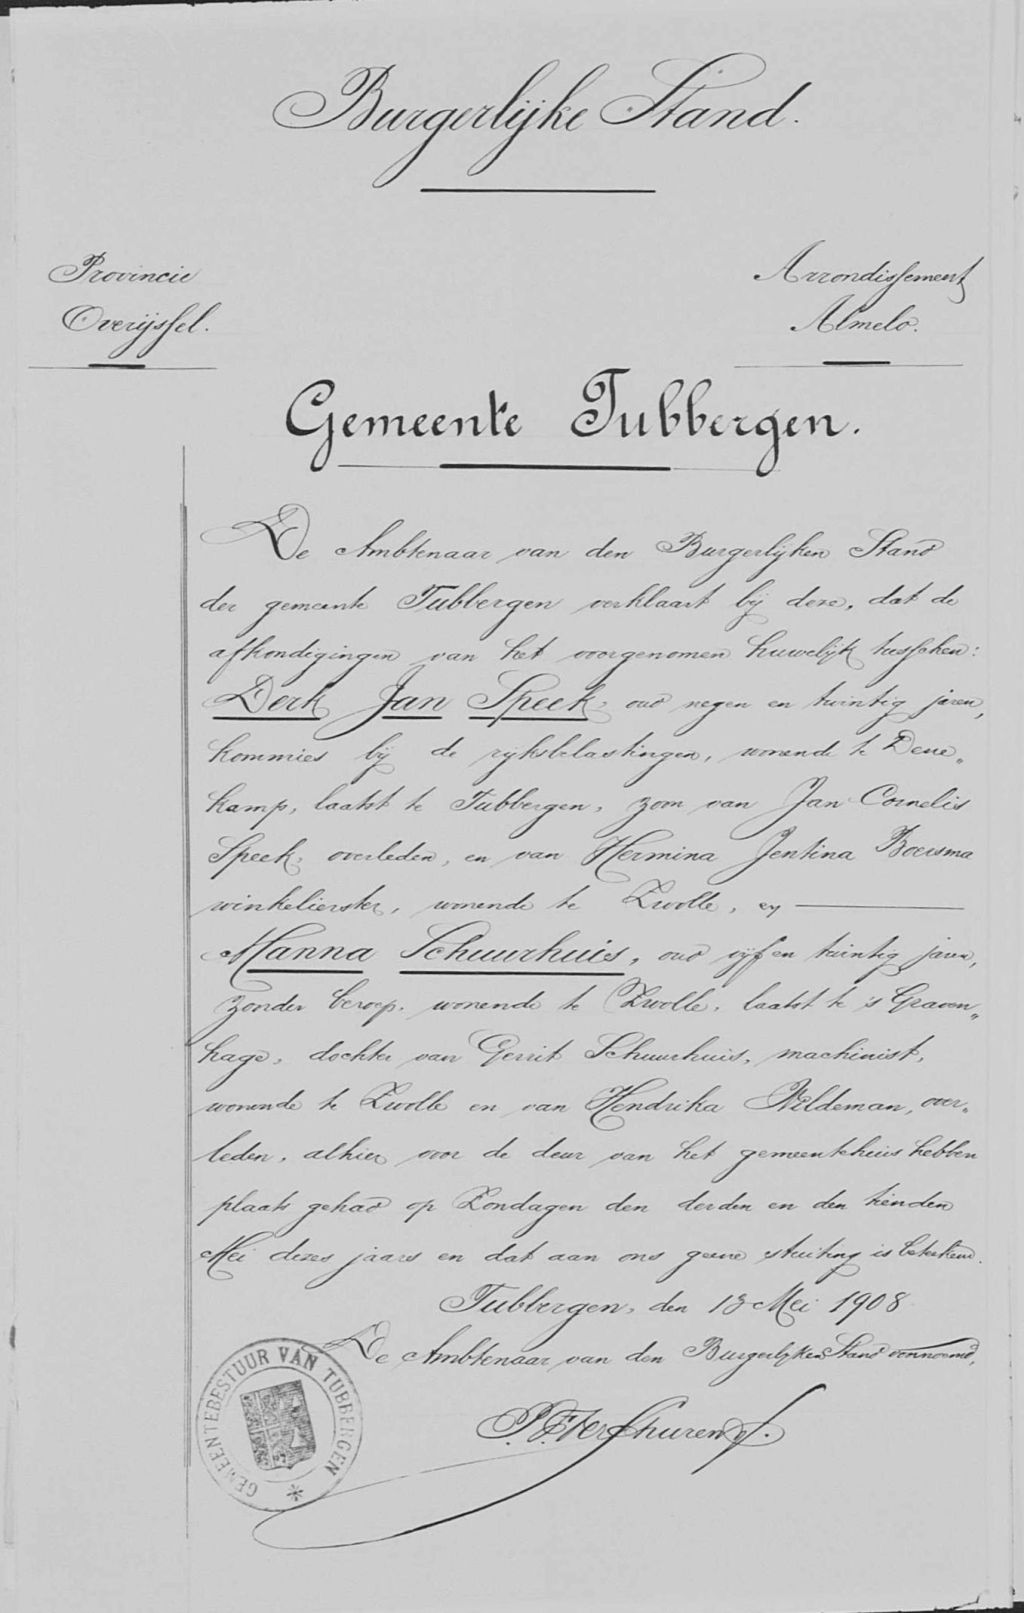 Burgerlijke Stand.
Provincie
Overijssel.
Arrondissement
Almelo.
Gemeente Tubbergen.
De Ambtenaar van den Burgerlijken Stand
der gemeente Tubbergen verklaart bij deze, dat de
afkondigingen van het voorgenomen huwelijk tusschen:
Derk Jan Speek, oud negen en twintig jaren,
kommies bij de rijksbelastingen, wonende te Dene„
kamp, laatst te Tubbergen, zoon van Jan Cornelis
Speek, overleden, en van Hermina Jentina Boersma
winkelierster, wonende te Zwolle, en
Manna Schuurhuis, oud vijf en twintig jaren,
zonder beroep, wonende te Zwolle, laatst te 's Graven„
hage, dochter van Gerrit Schuurhuis, machinist,
wonende te Zwolle en van Hendrika Wildeman, over„
leden, alhier voor de deur van het gemeentehuis hebben
plaats gehad op Zondagen den derden en den tienden
Mei dezes jaars en dat aan ons geene stuiting is beteekend.
Tubbergen, den 13 Mei 1908
De Ambtenaar van den Burgerlijken Stand voornoemd,
GEMEENTEBESTUUR VAN TUBBERGEN